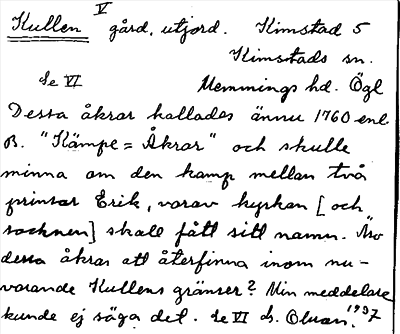 Kullen V gård, utjord. Kimstad 5
Kimstads sn.
Se VI Memmings hd. Ögl
Dessa åkrar kallades ännu 1760 enl.
B. "Kämpe=Åkrar" och skulle
minna om den kamp mellan två
prinsar Erik, varav kyrkan [och
socknen] skall fått sitt namn. Äro
dessa åkrar att återfinna inom nu-
varande Kullens gränser? Min meddelare
kunde ej säga det. Se VI ds. 1937